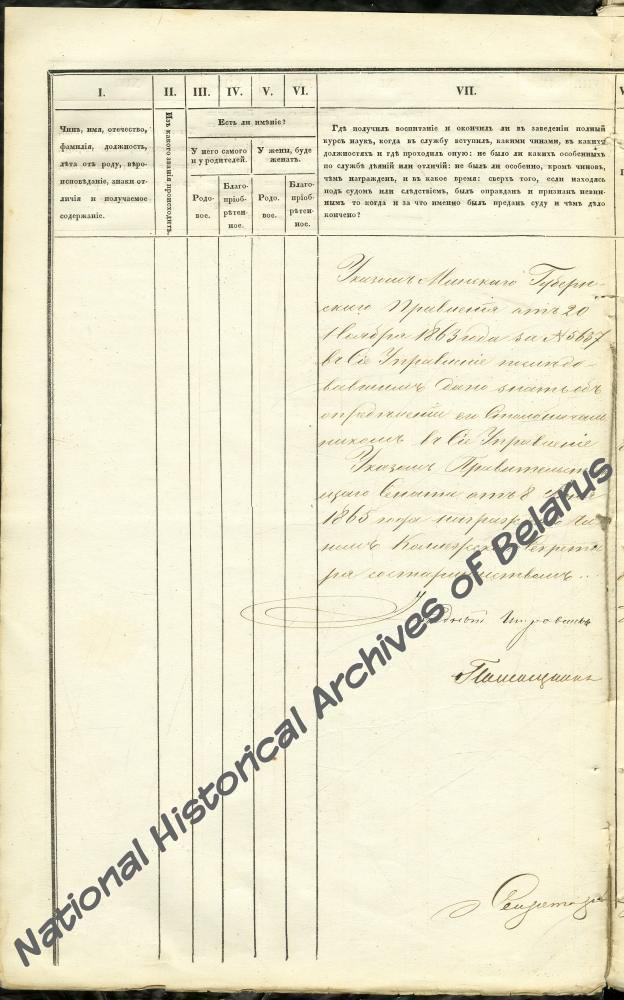 I.
II.
III.
IV.
V.
VI.
VII.
Чинъ, имя, отечество,
фамилія, должность,
лѣта отъ роду, вѣро-
исповѣданіе, знаки от-
личія и получаемое
содержаніе.
Изъ какого званія происходитъ.
Есть ли имѣніе?
У него самого
и у родителей.
У жены, буде
женатъ.
Родо-
вое.
Благо-
пріоб-
рѣтен-
ное.
Родо-
вое.
Благо-
пріоб-
рѣтен-
ное.
Гдѣ получилъ воспитаніе и окончилъ ли въ заведеніи полный
курсъ наукъ, когда въ службу вступилъ, какими чинами, въ какихъ
должностяхъ и гдѣ проходилъ оную: не было ли какихъ особенныхъ
по службѣ дѣяній или отличій: не былъ ли особенно, кромѣ чиновъ,
чѣмъ награжденъ, и въ какое время: сверхъ того, если находясь
подъ судомъ или слѣдствіемъ, былъ оправданъ и признанъ невин-
нымъ то когда и за что именно былъ преданъ суду и чѣмъ дѣло
кончено?
Указомъ Минскаго Губерн-
скаго Правленія отъ 20
Ноября 1863 года за № 5637
въ Сіе Управленіе
вавшимъ дано знать объ
опредѣленіи его Столоначаль
никомъ въ Сіе Управленіе
Указомъ Правительст
щаго Сената отъ 8
1865 года награжденъ Чи
номъ Коллежск Секрета
ря со старшинствомъ
Секретарь
National Historical Archives of Belarus